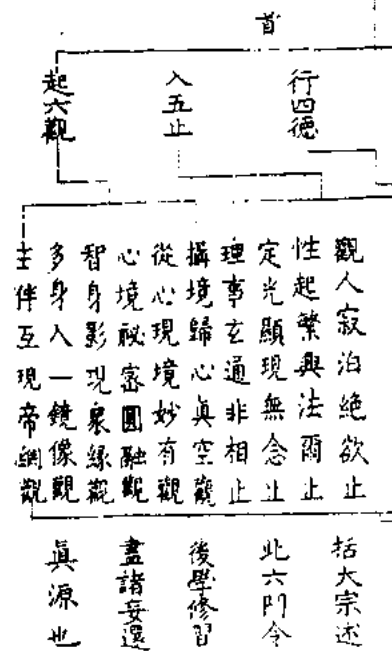 首
行四德
入五止
起六觀
觀人寂泊絕欲止
性起繁興法爾止
定光顯現無念止
理事玄通非相止
攝境歸心眞空觀
從心現境妙有觀
心境祕密圓融觀
智身影現衆緣觀
多身入一鏡像觀
主伴互現帝網觀
括大宗述
此六門令
後學修習
盡諸妄還
眞源也